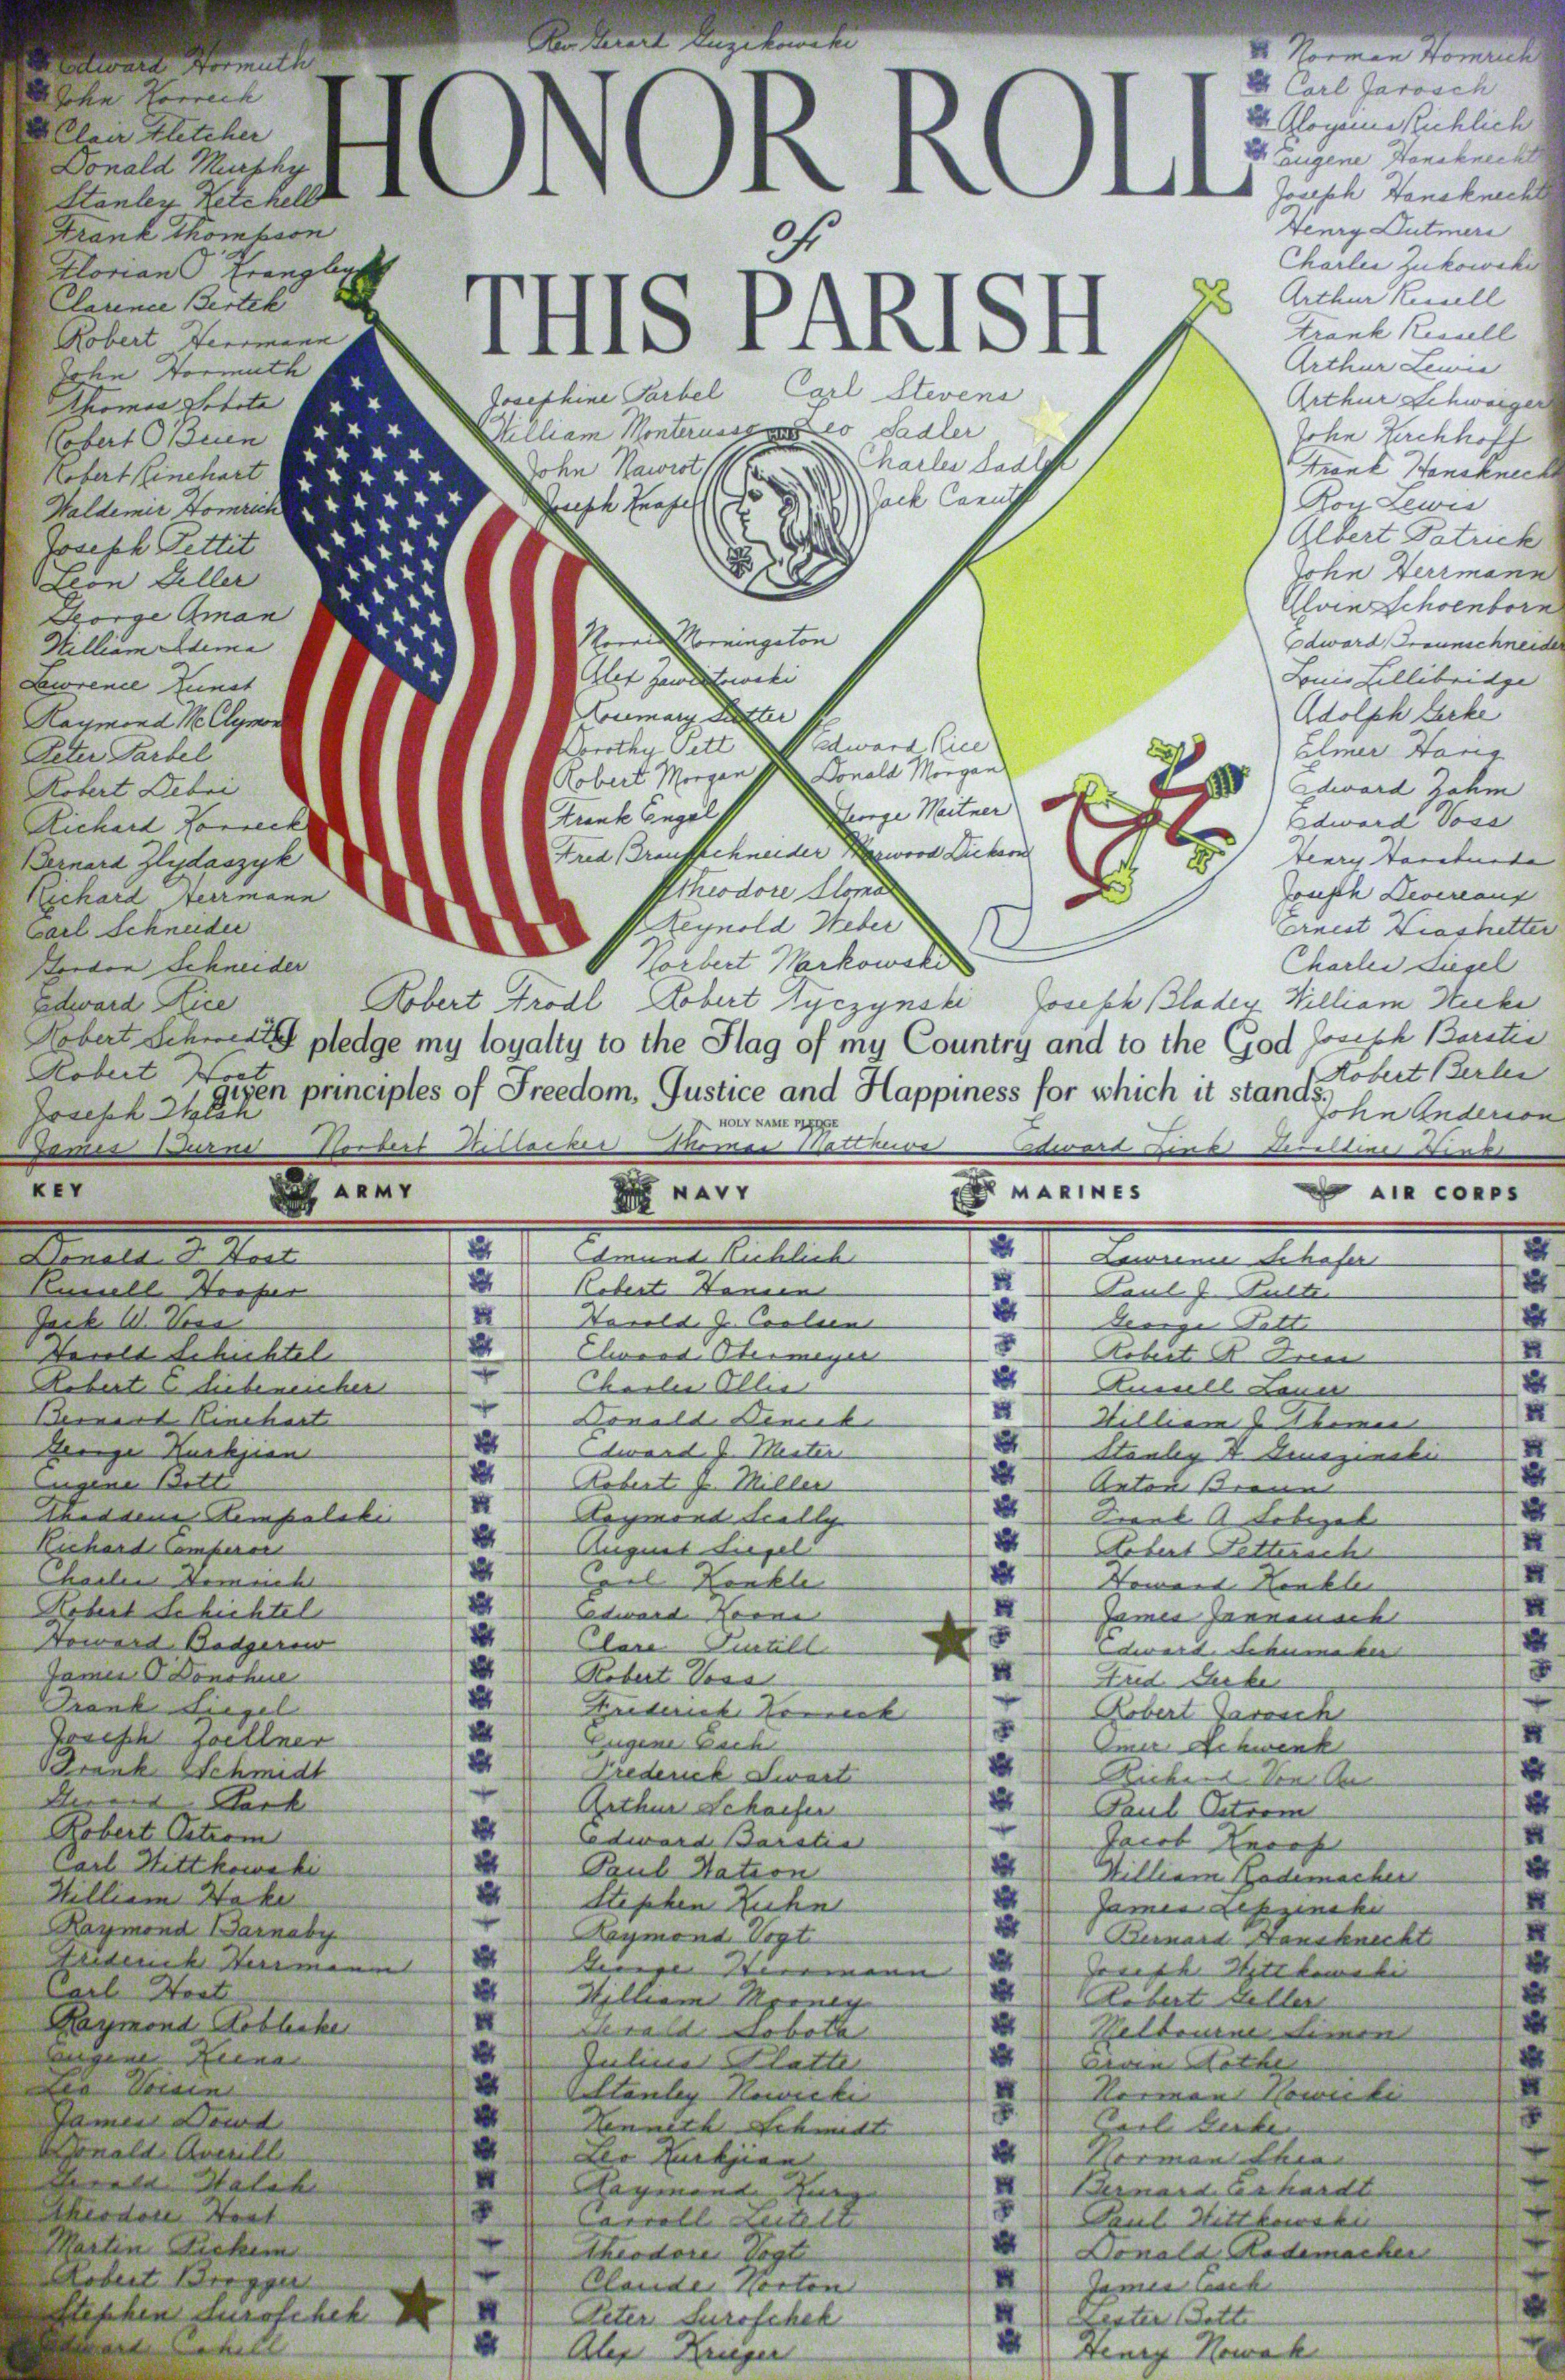 Rev. Gerard Guzikowski
HONOR ROLL
of
THIS PARISH
Edward Hormuth
John Korreck
Clair Fletcher
Donald Murphy
Stanley Ketchell
Frank Thompson
Florian O'Krangley
Clarence Bertek
Robert Herrmann
John Hormuth
Thomas Sobota
Robert O'Brien
Robert Rinehart
Waldemir Homrich
Joseph Pettit
Leon Geller
George Aman
William Idema
Lawrence Kunst
Raymond McClymon
Peter Parbel
Robert Debri
Richard Korreck
Bernard Zlydaszyk
Richard Herrmann
Carl Schneider
Gordon Schneider
Edward Rice
Robert
Robert Host
Joseph Walsh
Josephine Parbel
William Monterusso
John Nawrot
Joseph Knape
Carl Stevens
Leo Sadler
Charles Sadler
Jack Canute
HNS
Morris Morningston
Alex Zawistowski
Rosemary Sutter
Dorothy Pett
Robert Morgan
Frank Engel
Fred Braunschneider
Edward Rice
Donald Morgan
George Meitner
Norwood Dickson
Theodore Sloma
Reynold Weber
Norbert Markowski
Robert Frodl Robert Tyczynski Joseph Bladey
Norman Homrich
Carl Jarosch
Aloysius Richlich
Eugene Hansknecht
Joseph Hansknecht
Henry Dutmers
Charles Zukowski
Arthur Ressell
Frank Ressell
Arthur Lewis
Arthur Schwaiger
John Kirchhoff
Frank Hansknecht
Roy Lewis
Albert Patrick
John Herrmann
Alvin Schoenborn
Edward Braunschneider
Louis Lillibridge
Adolph Gerke
Elmer Harig
Edward Zahm
Edward Voss
Henry
Joseph Devereaux
Ernest
Charles Siegel
William Weeks
Joseph Barstis
Robert Berles
John Anderson
"I pledge my loyalty to the Flag of my Country and to the God
given principles of Freedom, Justice and Happiness for which it stands."
HOLY NAME PLEDGE
James Burns Norbert Willacker Thomas Matthews Edward Fink Geraldine Fink
KEY ARMY NAVY MARINES AIR CORPS
Donald F. Host Edmund Richlich Lawrence Schafer
Russell Hooper Robert Hansen Paul J. Pulte
Jack W. Voss Harold J. Coolsen George Patt
Harold Schichtel Elwood Obermeyer Robert R
Robert E Siebeneicher Charles Ollis Russell Lauer
Bernard Rinehart Donald William J Thomas
George Kurkjian Edward J. Mester Stanley A Gruszinski
Eugene Bott Robert J. Miller Anton Braun
Thaddeus Rempalski Raymond Scally Frank A Sobczak
Richard Emperor August Siegel Robert Pettersch
Charles Homrich Carl Konkle Howard Konkle
Robert Schichtel Edward Koons James Jannausch
Howard Badgerow Clare Purtill Edward Schumaker
James O'Donohue Robert Voss Fred Gerke
Frank Siegel Frederick Korreck Robert Jarosch
Joseph Zoellner Eugene Esch Omer Schwenk
Frank Schmidt Frederick Swart Richard Von Au
Gerard Park Arthur Schaefer Paul Ostrom
Robert Ostrom Edward Barstis Jacob Knoop
Carl Wittkowski Paul Watson William Rademacher
William Hake Stephen Kuhn James Lepzinski
Raymond Barnaby Raymond Vogt Bernard Hansknecht
Frederick Herrmann George Herrmann Joseph Wittkowski
Carl Host William Mooney Robert Geller
Raymond Robleske Gerald Sobota Melbourne Simon
Eugene Keena Julius Platte Ervin Rothe
Leo Voisin Stanley Nowicki Norman Nowicki
James Dowd Kenneth Schmidt Carl Gerke
Donald Averill Leo Kurkjian Norman Shea
Gerald Walsh Raymond Kurg Bernard Erhardt
Theodore Host Carroll Leitelt Paul Wittkowski
Martin Pickem Theodore Vogt Donald Rademacher
Robert Brogger Claude Norton James Esch
Stephen Surofchek Peter Surofchek Lester Bott
Edward Cahill Alex Krieger Henry Nowak